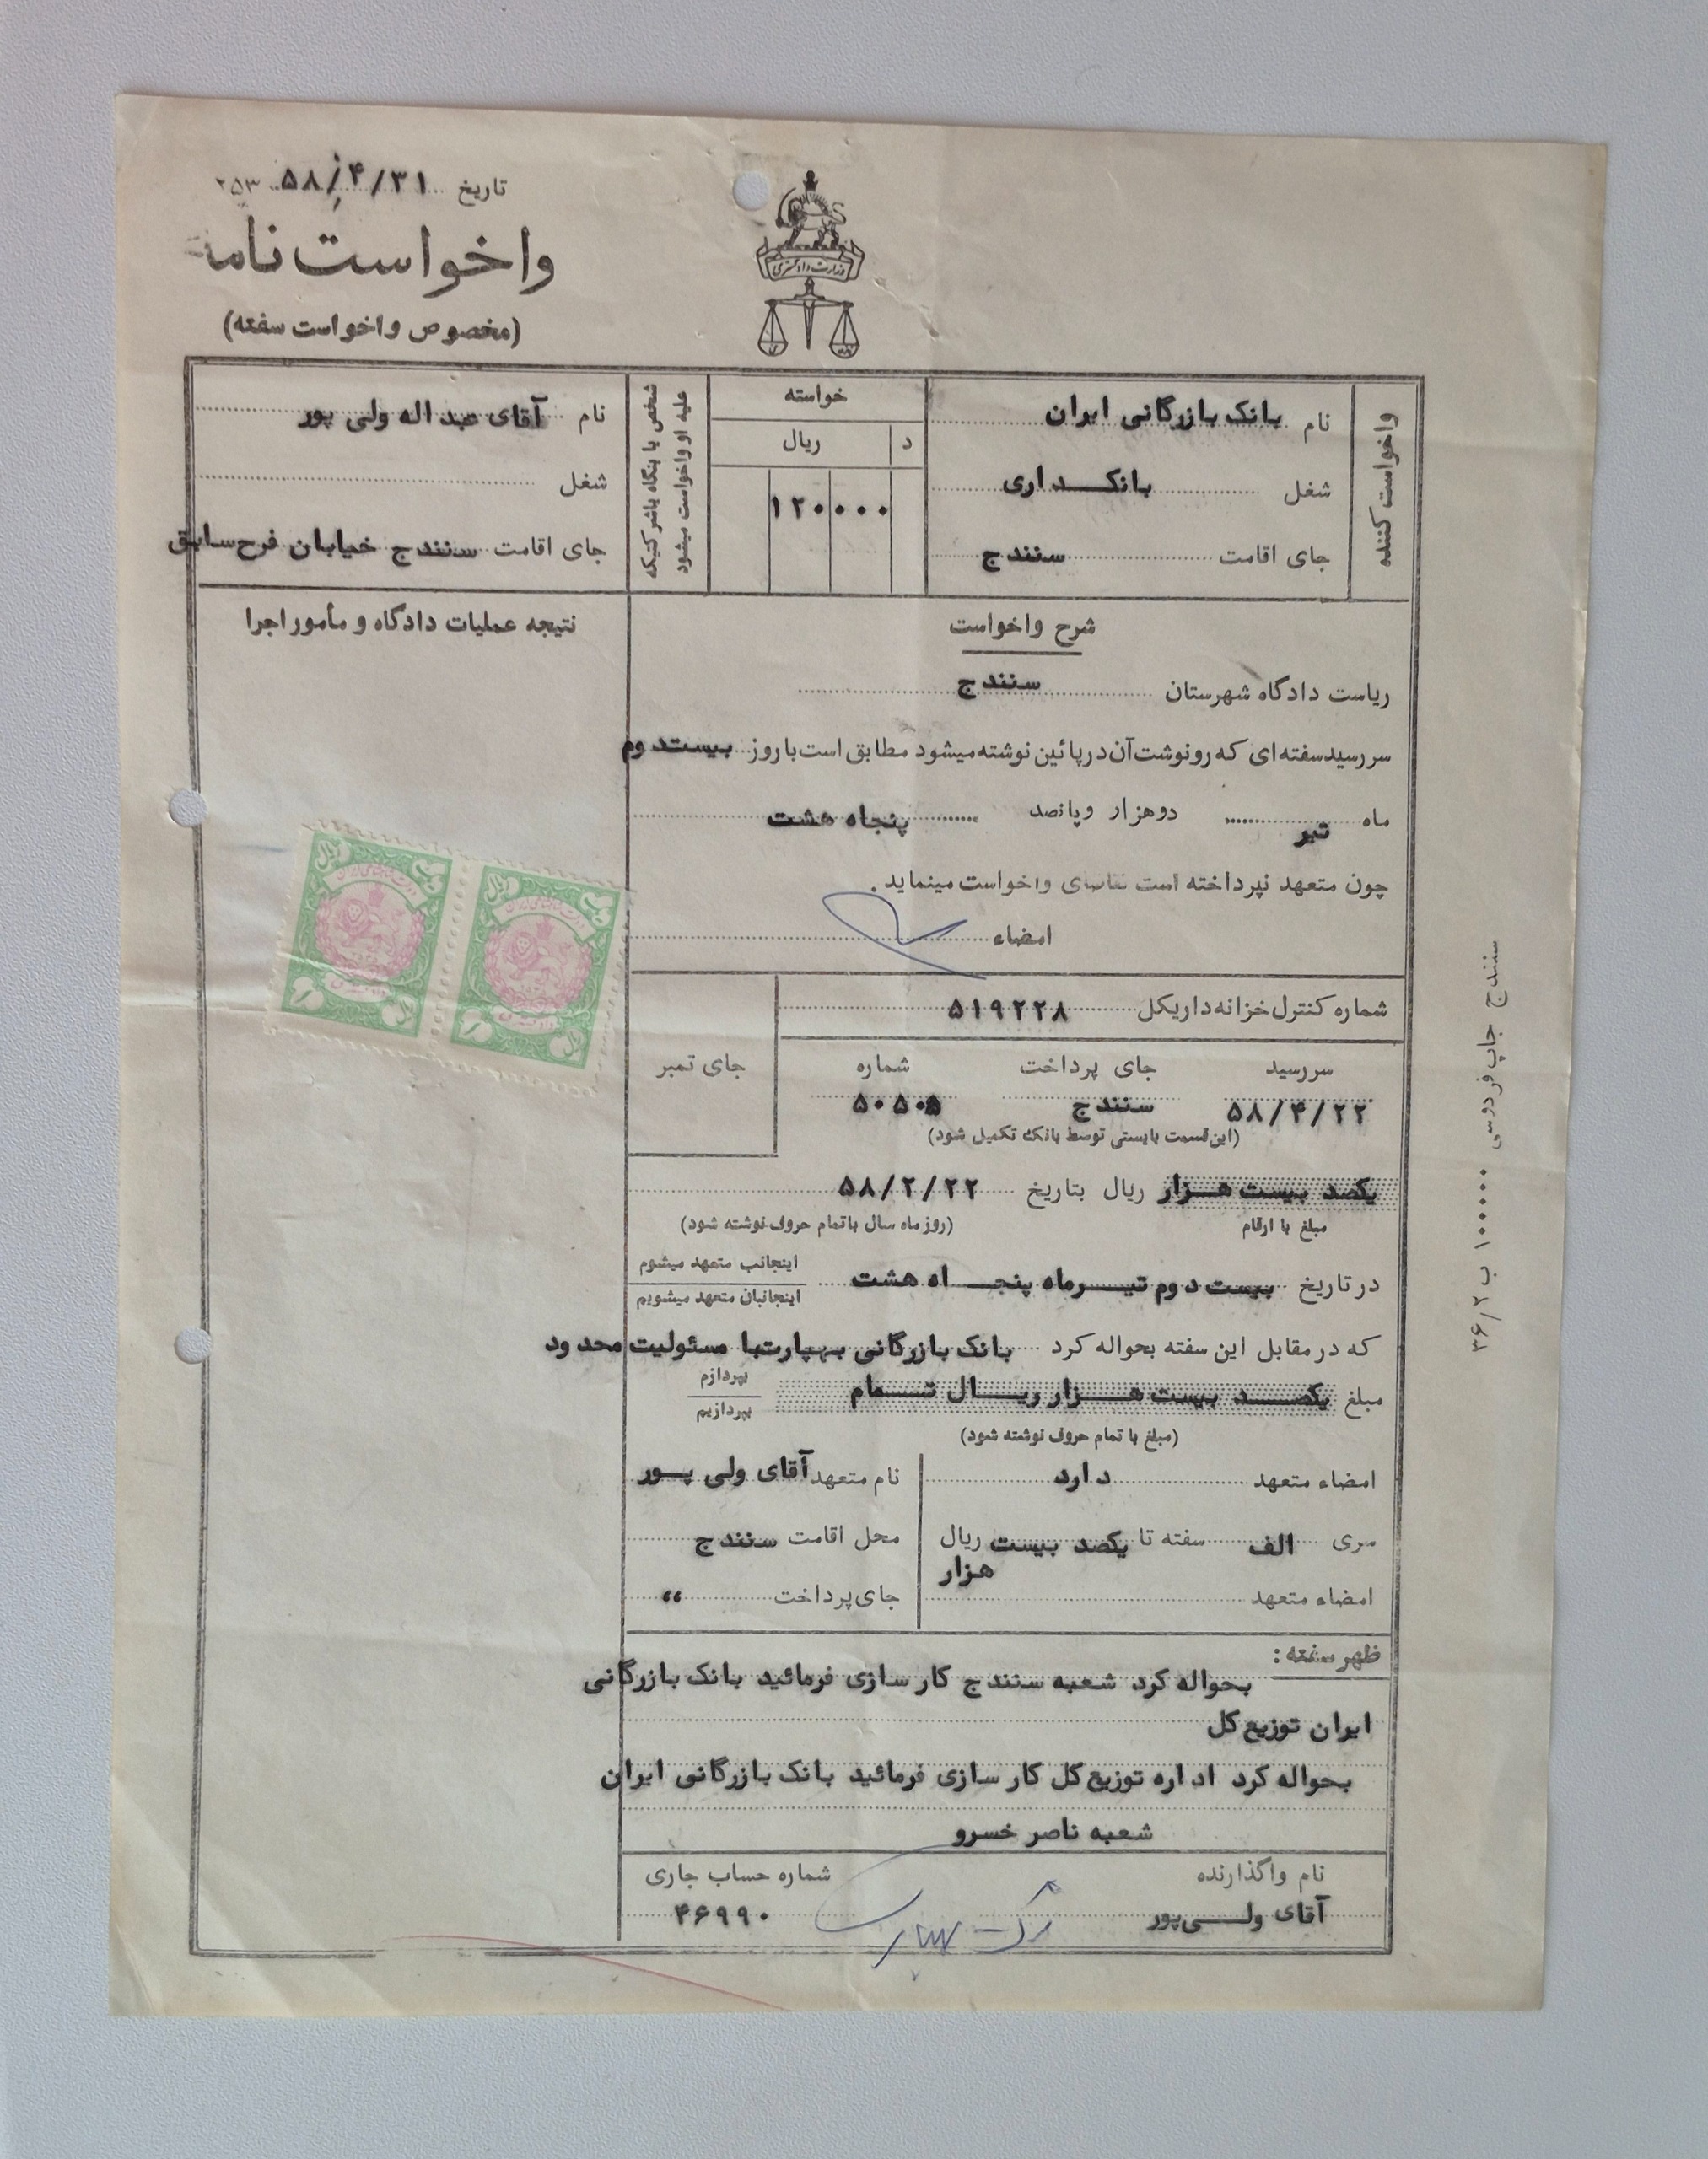 تاریخ ۵۸/۴/۳۱ ۲۵۳
وزارت دادگستری
واخواست نامه
(مخصوص واخواست سفته)
واخواست کننده
نام بانک بازرگانی ایران
شغل بانکداری
جای اقامت سنندج
خواسته
ریال د
۱۲۰۰۰۰
شخص یا بنگاه یا شرکتیکه
علیه او واخواست میشود
نام آقای عبداله ولی پور
شغل
جای اقامت سنندج خیابان فرح سابق
شرح واخواست
نتیجه عملیات دادگاه و مأمور اجرا
ریاست دادگاه شهرستان سنندج
سررسید سفته‌ای که رونوشت آن در پائین نوشته میشود مطابق است با روز بیستدوم
ماه تیر دو هزار و پانصد پنجاه هشت
چون متعهد نپرداخته است تقاضای واخواست مینماید.
امضاء
شماره کنترل خزانه‌داریکل ۵۱۹۲۲۸
جای تمبر
سررسید جای پرداخت شماره
۵۸/۴/۲۲ سنندج ۵۰۵۰۵
(این قسمت بایستی توسط بانک تکمیل شود)
یکصد بیست هزار ریال بتاریخ ۵۸/۲/۲۲
مبلغ با ارقام (روز ماه سال با تمام حروف نوشته شود)
در تاریخ بیست دوم تیرماه پنجاه هشت اینجانب متعهد میشوم
اینجانبان متعهد میشویم
که در مقابل این سفته بحواله کرد بانک بازرگانی بهپارت با مسئولیت محدود
مبلغ یکصد بیست هزار ریال تمام بپردازم
بپردازیم
(مبلغ با تمام حروف نوشته شود)
امضاء متعهد دارد نام متعهد آقای ولی پور
سری الف سفته تا یکصد بیست ریال محل اقامت سنندج
هزار
امضاء متعهد جای پرداخت "
ظهر سفته:
بحواله کرد شعبه سنندج کار سازی فرمائید بانک بازرگانی
ایران توزیع کل
بحواله کرد اداره توزیع کل کار سازی فرمائید بانک بازرگانی ایران
شعبه ناصر خسرو
نام واگذارنده شماره حساب جاری
آقای ولی‌پور ۴۶۹۹۰
سنندج چاپ فردوسی ۱۰۰۰۰۰ ب ۳۶/۲